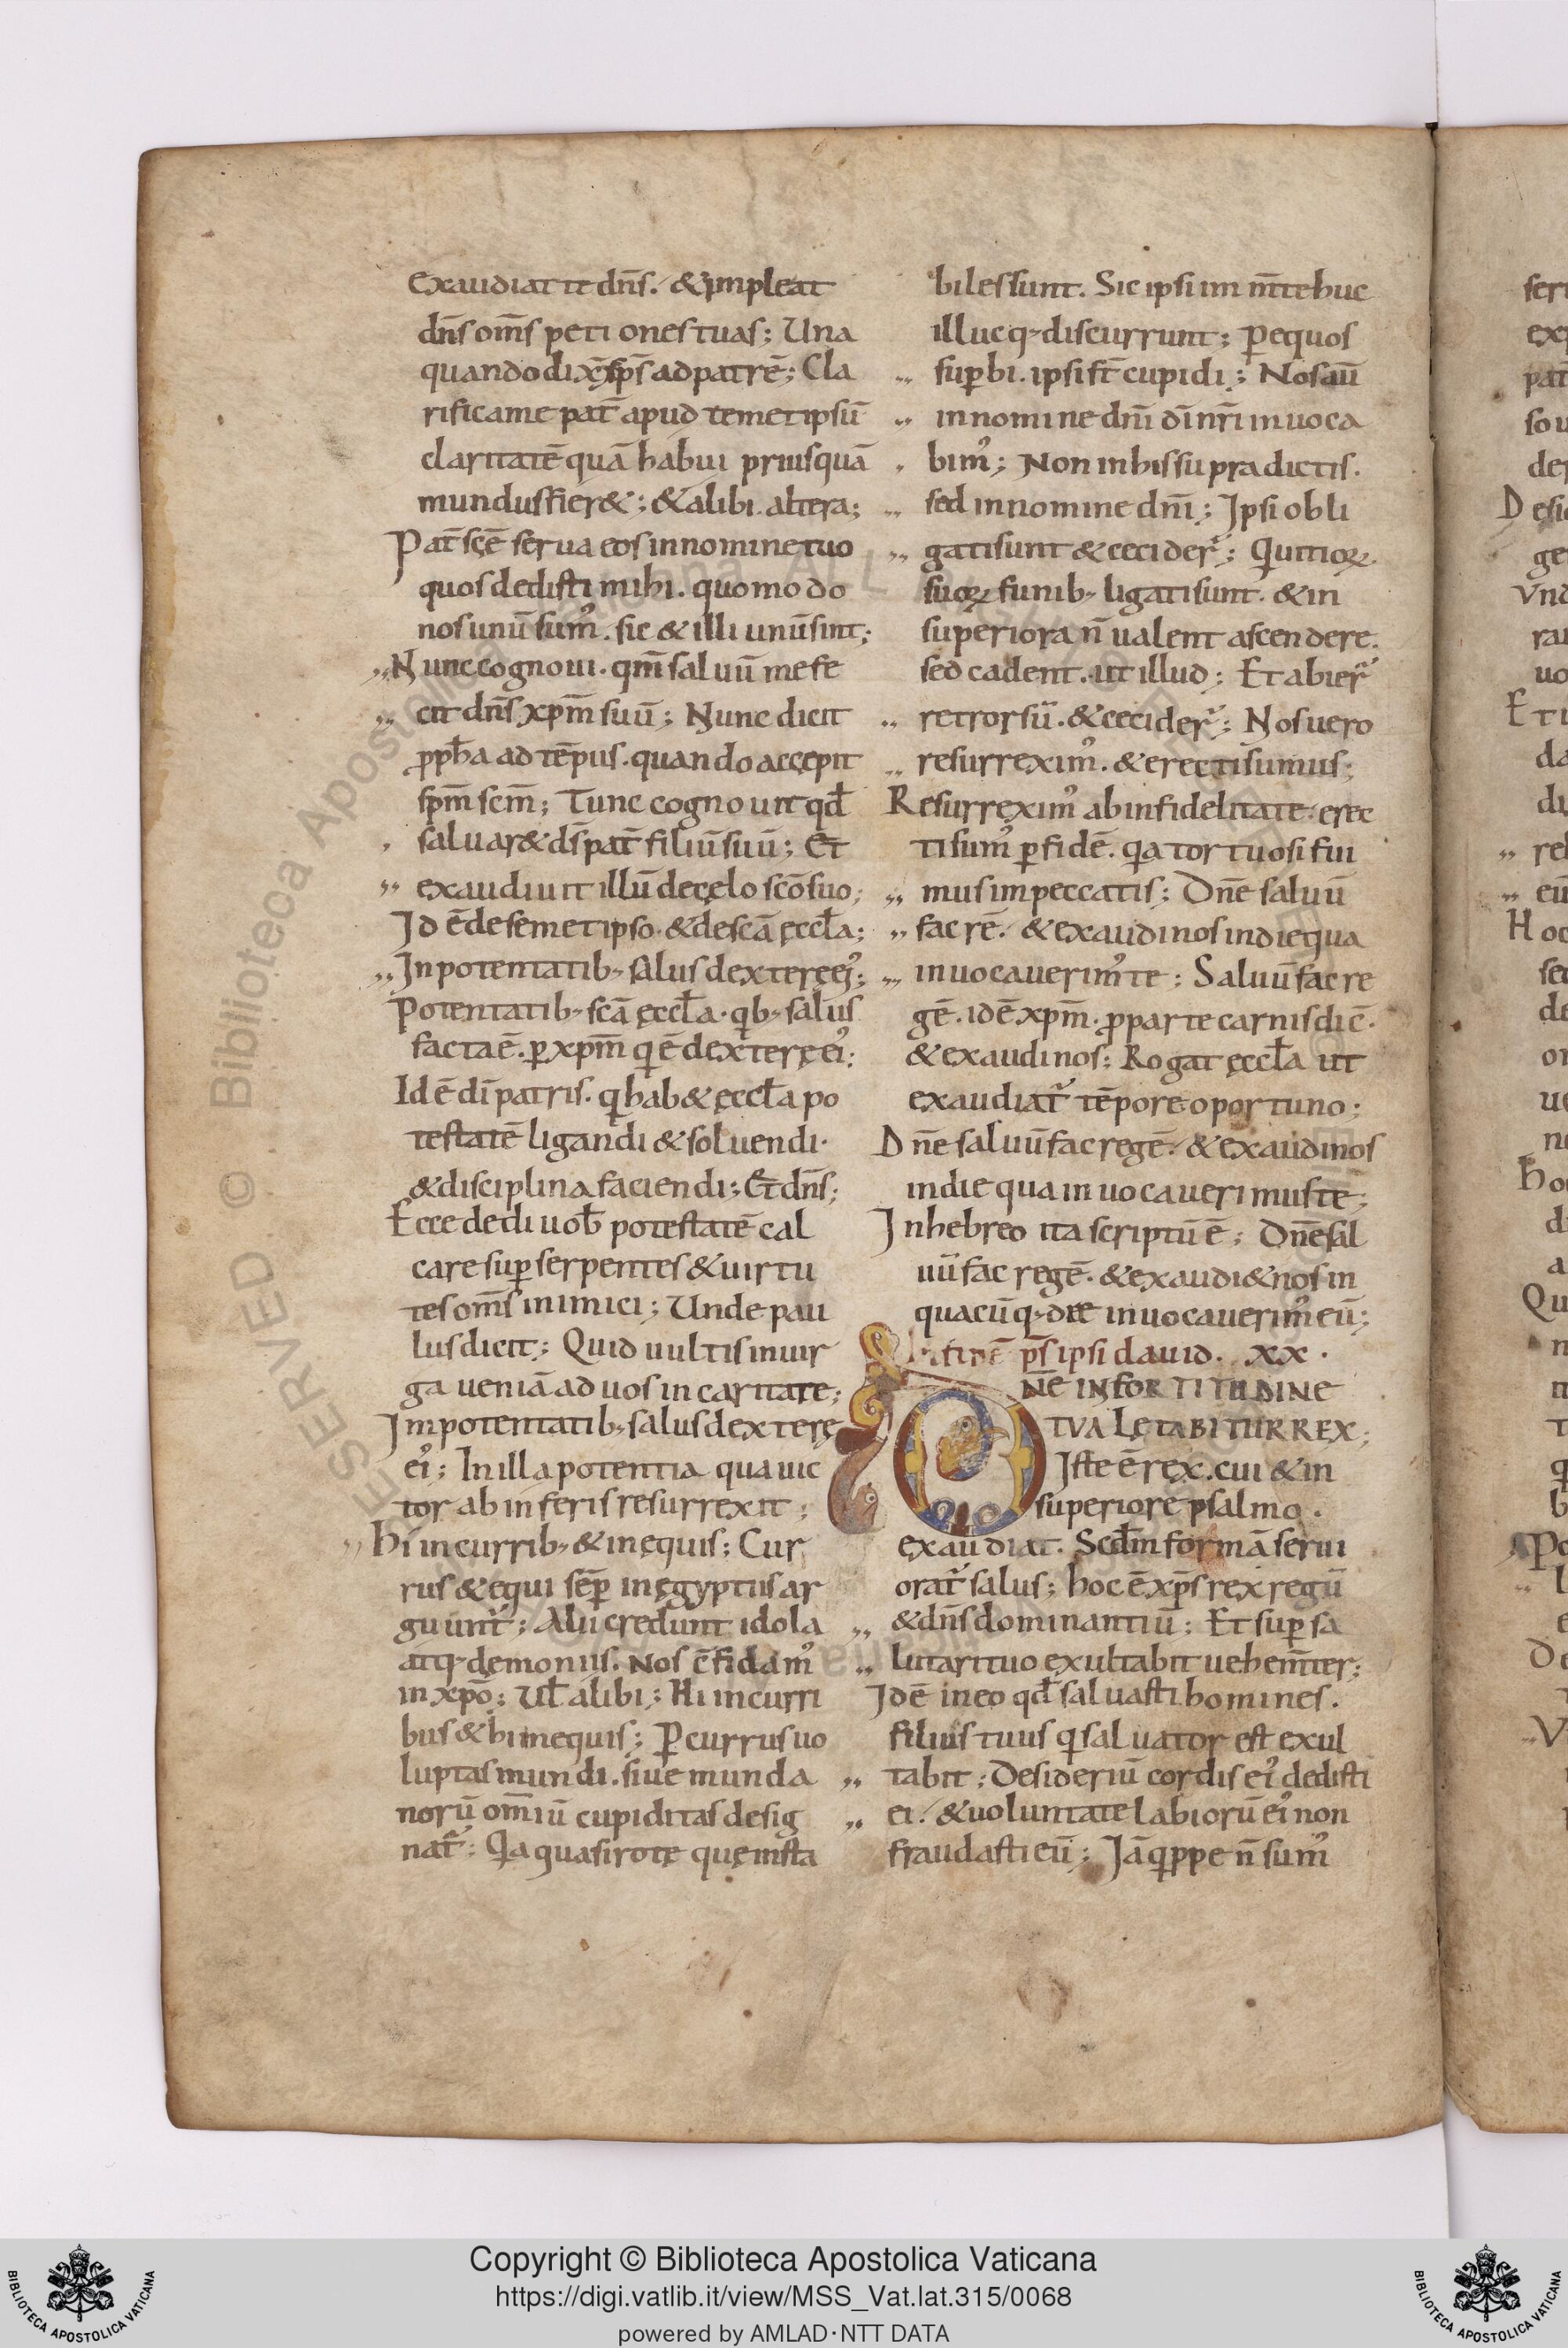 exaudiat te dn̄s. &impleat
dn̄s om̄s petitiones tuas; Una
quando dix̄ xp̄s ad patrē; Cla
rifica me pat̄ apud temetipsū
claritatē quā habui priusquā
mundus fier&; &alibi. altera;
Pat̄ sc̄e serua eos in nomine tuo
quos dedisti mihi. quomodo
nos unū sum᾿. sic & illi unū sint;
„ Nunc cognoui. qm̄ saluū me fe
„ cit dn̄s xp̄m suū; Nunc dicit
ꝓph̄a ad tēpus. quando accepit
sp̄m sc̄m; Tunc cognouit qđ
, saluar& ds̄ pat̄ filiū suū; Et
„ exaudiuit illū de cęlo sc̄o suo;
Id ē de semetipso. & de sc̄a ęccl̄a;
„ In potentatib; salus dexterę ei᾿;
Potentatib; sc̄a ęccl̄a. qib; salus
facta ē. ꝑ xp̄m qi ē dexterę ei᾿;
Id ē dī patris. qi hab& ęccl̄a po
testatē ligandi & soluendi.
& disciplina faciendi; Et dn̄s;
Ecce dedi uob̄ potestatē cal
care suꝑ serpentes & uirtu
tes om̄s inimici; Unde pau
lus dicit; Quid uultis in uir
ga ueniā ad uos in caritate;
Im potentatib; salus dexterę
ei᾿; In illa potentia qua uic
tor ab inferis resurrexit;
„ Hi in currib; & in ęquis; Cur
rus & equi sēꝑ in ęgyptiis ar
guunt᾿; Alii credunt idola
atq; dęmoniis. Nos c̄fidam᾿
in xp̄o; Ul̄ alibi; Hi in curri
bus & hi in equis; Ꝑ currus uo
luptas mundi. siue munda
norū om̄iū cupiditas desig
nat᾿; Qia quasi rotę quę insta
biles sunt. Sic ipsi im m̄te huc
illucq; discurrunt; Ꝑ equos
suꝑbi. ipsi st̄ cupidi; Nos aū
„ in nomine dn̄i dī nr̄i inuoca
, bim᾿; Non in his supradictis.
„ sed in nomine dn̄i; Ipsi obli
„ gati sunt & cecider᾿; Qui uitioꝝ
suoꝝ funib; ligati sunt. & in
superiora n̄ ualent ascendere.
sed cadent. ut illud; Et abier᾿
„ retrorsū. & cecider᾿; Nos uero
„ resurrexim᾿. & erecti sumus;
Resurrexim᾿ ab infidelitate. erec
ti sum᾿ ꝑ fidē. qia tortuosi fui
„ mus im peccatis; Dn̄e saluū
„ fac rē. & exaudi nos in die qua
„ inuocauerim᾿ te; Saluū fac re
gē. id ē xp̄m. ꝓ parte carnis dic̄.
& exaudi nos; Rogat ęccl̄a ut
exaudiat᾿ tēpore oportuno;
Dn̄e saluū fac regē. & exaudi nos
in die qua inuocauerimus te;
In hebreo ita scriptū ē; Dn̄e sal
uū fac regē. & exaudi& nos in
quacūq; die inuocauerim᾿ eū;
In finē ps̄ ipsi dauid. XX.
DNE IN FORTITUDINE
TVA LĘTABITUR REX;
Iste ē rex. cui & in
superiore psalmo.
exaudiat. Scđm formā serui
orat᾿ salus; hoc ē xp̄s rex regū
„ & dn̄s dominantiū; Et suꝑ sa
„ lutari tuo exultabit uehem̄ter;
Id ē in eo qđ saluasti homines.
filius tuus qi saluator est exul
„ tabit; Desideriū cordis ei᾿ dedisti
„ ei. & uoluntate labiorū ei᾿ non
fraudasti eū; Iā qippe n̄ sum᾿
Copyright © Biblioteca Apostolica Vaticana
https://digi.vatlib.it/view/MSS_Vat.lat.315/0068
powered by AMLAD·NTT DATA
BIBLIOTECA APOSTOLICA VATICANA
BIBLIOTECA APOSTOLICA VATICANA